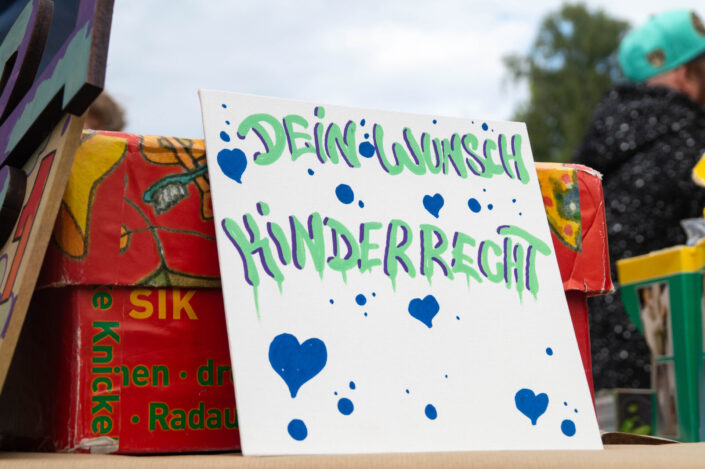 DEIN WUNSCH
KINDERRECHT
SIK
e Knicke
nen · dr
· Radau